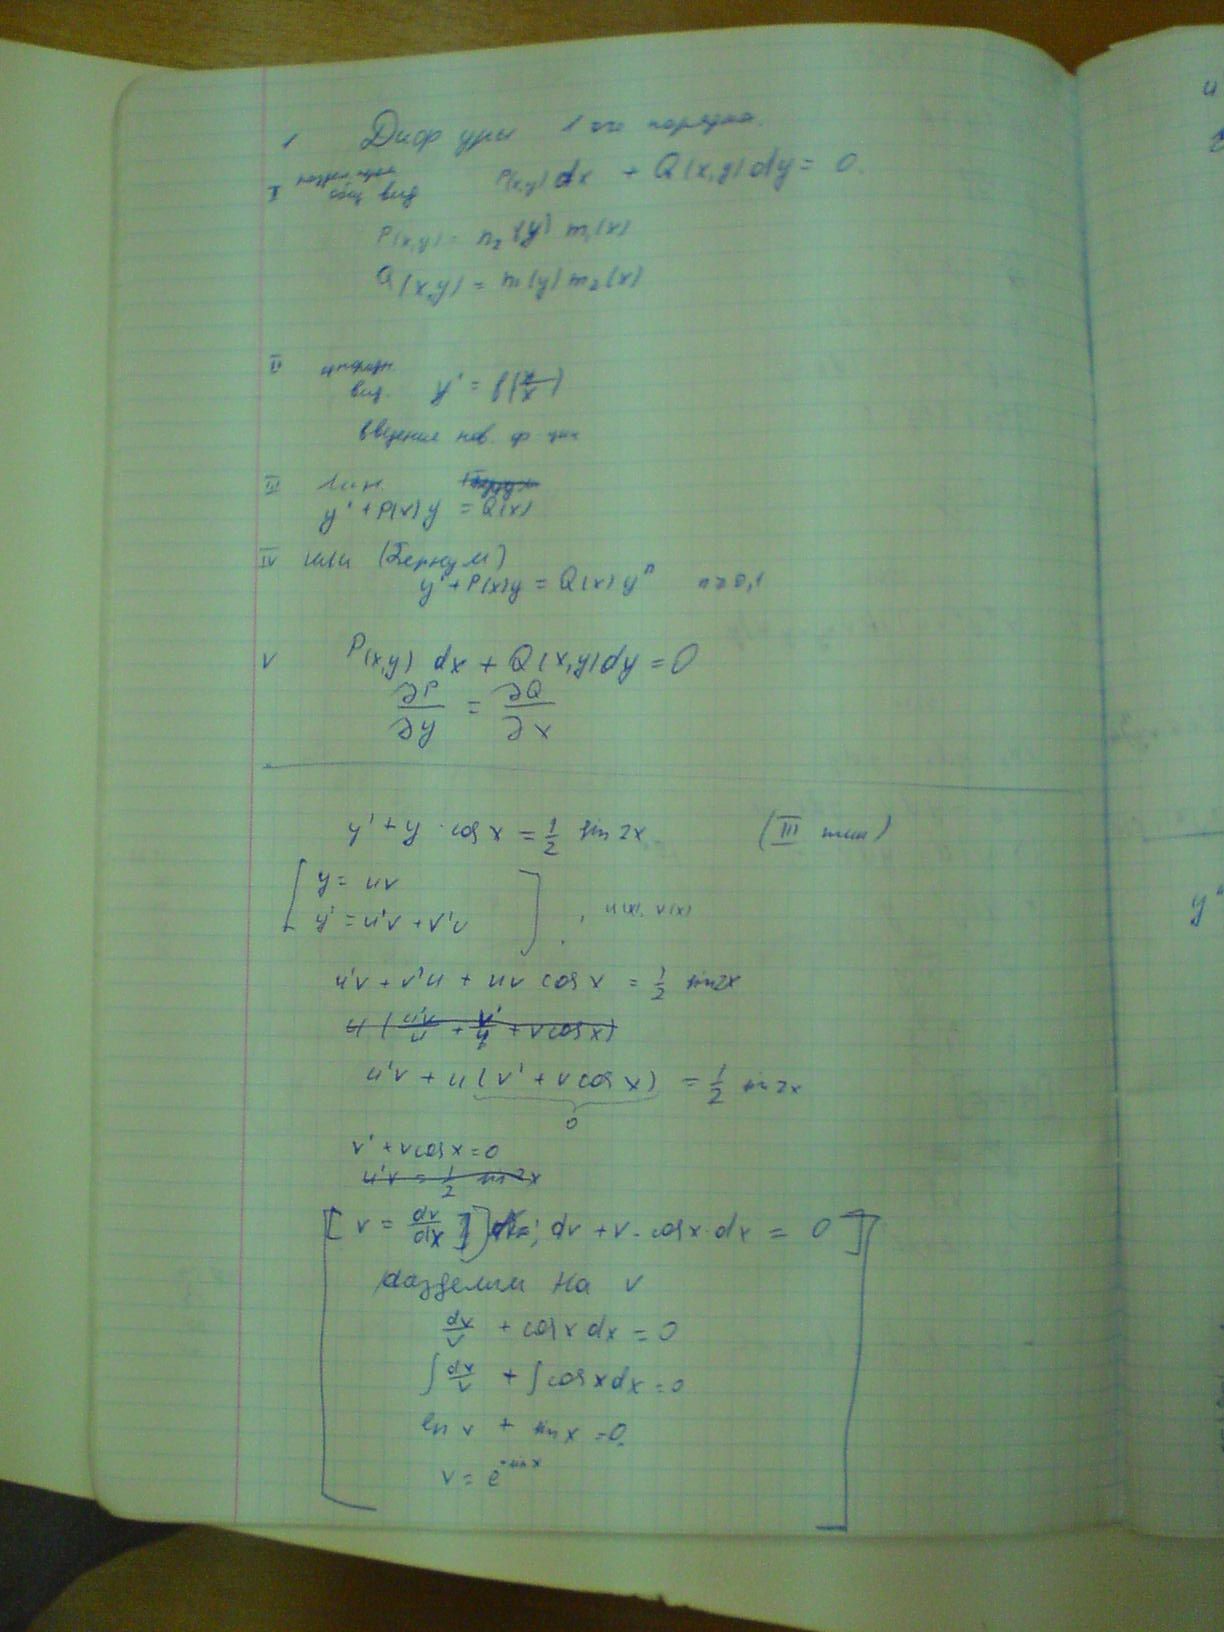 1 Диф уры 1 ого порядка.
I раздел. перем.
общ вид P(x,y) dx + Q(x,y) dy = 0.
P(x,y) = n₂(y) m₁(x)
Q(x,y) = n₁(y) m₂(x)
II
вид. y' = f(y/x)
введение нов. ф-ции
III лин.
y' + P(x)y = Q(x)
IV (Бернулли)
y' + P(x)y = Q(x) yⁿ
V P(x,y) dx + Q(x,y) dy = 0
∂P/∂y = ∂Q/∂x
y' + y · cos x = 1/2 sin 2x (III тип)
[ y = uv
y' = u'v + v'u ] , u(x), v(x)
u'v + v'u + uv cos x = 1/2 sin 2x
u'v + u(v' + v cos x) = 1/2 sin 2x
0
v' + v cos x = 0
u'v = 1/2 sin 2x
[ v = dv/dx ] ; dv + v · cos x · dx = 0 ]
разделим на v
dv/v + cos x dx = 0
∫ dv/v + ∫ cos x dx = 0
ln v + sin x = 0.
v = e^(-sin x)
y'